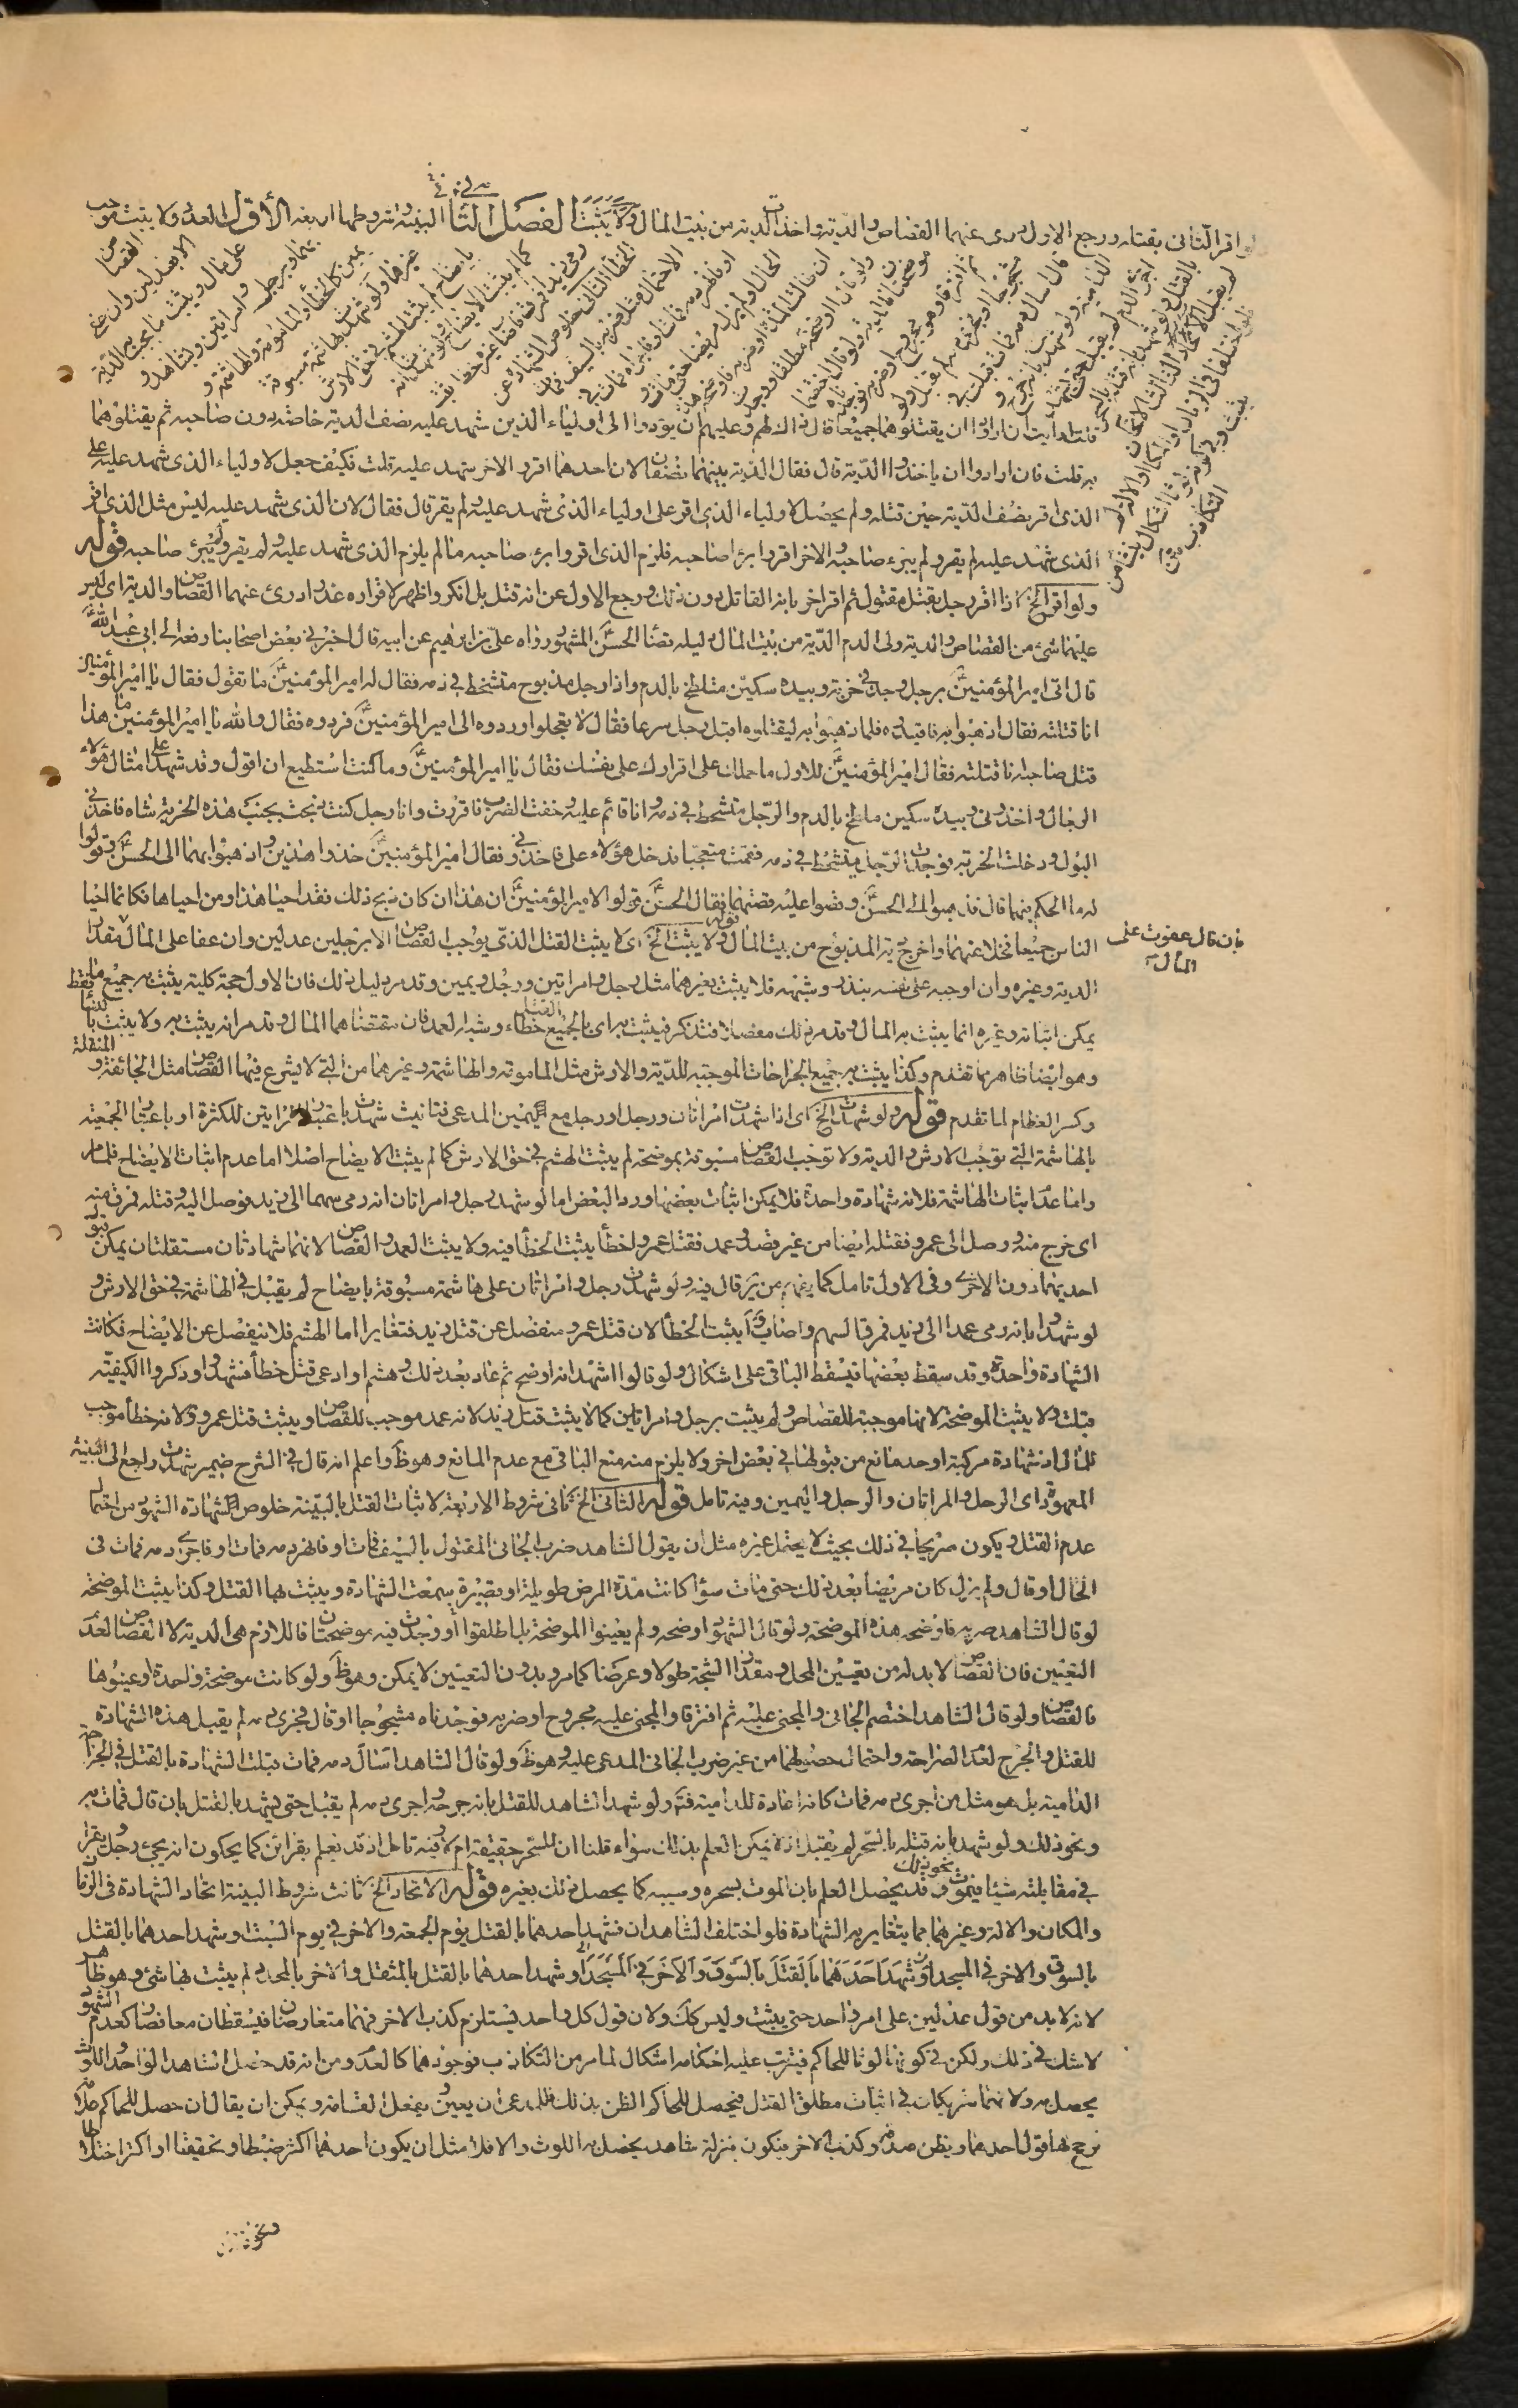 ولو اقر الثانى بقتله ورجع الاول درى عنهما القصاص والدية واخذت الدية من بيت المال ولا يثبت الفصل الثانى البينة وشروطها اربعة الأول العدد ولا يثبت موجب
القصاص
الا بعدلين وان عفى
على مال ويثبت ما يجب به الدية
برجل وامراتين وبشاهد و
يمين كالخطأ والمامومة والهاشمة و
غيرها ولو شهدت بهاشمة مسبوقة
بايضاح لم يثبت الهشم فى حق الارش
كما لم يثبت الايضاح ولو شهد انه
رمى زيدا فمرق فاصاب غيره خطأ يثبت
الخطأ الثانى خلوص الشهادة عن
الاحتمال مثل ضربه بالسيف فمات
او فانهر دمه فمات او فاجراه فمات فى
الحال او لم يزل مريضا حتى مات و
ان طالت المدة او ضربه فاوضحه هذه
ولو قال اوضحه مطلقا ووجدت
موضحتان فالدية ولو قال اختصما
ثم افترقا وهو مجروح او ضربه فوجدناه
مشجوجا او فجرى دمه لم يقبل ولو
قال اسال دمه فمات قبلت فى
الدامية ولو شهد بانه جرح و
اجرى الدم لم يقبل حتى يشهد
بالقتل ولو شهد بانه قتله بالسحر
لم يقبل الثالث الاتحاد
فلو اختلفا فى الزمان او المكان او الالة لم
يثبت وفى كونه لوثا اشكال ينشأ من
التكاذب
قلت ارايت ان ارادوا ان يقتلوهما جميعا قال ذاك لهم وعليهم ان يؤدوا الى اولياء الذين شهد عليه نصف الدية خاصة دون صاحبه ثم يقتلوهما
به قلت فان ارادوا ان ياخذوا الدية قال فقال الدية بينهما نصفان لان احدهما اقر والاخر شهد عليه قلت فكيف جعل لاولياء الذى شهد عليه على
الذى اقر نصف الدية حين قتله ولم يجعل لاولياء الذى اقر على اولياء الذى شهد عليه ولم يقر قال فقال لان الذى شهد عليه ليس مثل الذى اقر
الذى شهد عليه لم يقر ولم يبرئ صاحبه والاخر اقر وابرأ صاحبه فلزم الذى اقر وابرئ صاحبه ما لم يلزم الذى شهد عليه ولم يقر ولم يبرئ صاحبه قوله
ولو اقر الخ اذا اقر رجل بقتل مقتول ثم اقر اخر بانه القاتل دون ذلك ورجع الاول عن انه قتل بل انكر واظهر لاقراره عذرا درئ عنهما القصاص والدية اى ليس
عليهما شئ من القصاص والدية ولى الدم الدية من بيت المال دليله قضاء الحسن المشهور رواه على بن ابراهيم عن ابيه قال اخبرنى بعض اصحابنا رفعه الى ابى عبد الله
قال اتى امير المؤمنين برجل وجد فى خربة وبيده سكين متلطخ بالدم واذا رجل مذبوح متشحط فى دمه فقال له امير المؤمنين ما تقول فقال يا امير المؤمنين
انا قتلته فقال اذهبوا به فاقيدوه فلما ذهبوا به ليقتلوه اقبل رجل مسرعا فقال لا تعجلوا وردوه الى امير المؤمنين فردوه فقال والله يا امير المؤمنين ما هذا
قتل صاحبه انا قتلته فقال امير المؤمنين للاول ما حملك على اقرارك على نفسك فقال يا امير المؤمنين وما كنت استطيع ان اقول وقد شهد على امثال هؤلاء
الرجال واخذونى وبيدى سكين ملطخ بالدم والرجل متشحط فى دمه وانا قائم عليه وخفت الضرب فاقررت وانا رجل كنت ذبحت بجنب هذه الخربة شاة فاخذنى
البول ودخلت الخربة فوجدت الرجل متشحط فى دمه فقمت متعجبا فدخل هؤلاء على فاخذونى وفقال امير المؤمنين خذوا هذين واذهبوا بهما الى الحسن وقولوا
له ما الحكم فيهما قال فذهبوا الى الحسن وقصوا عليه قصتهما فقال الحسن قولوا لامير المؤمنين ان هذا ان كان ذبح ذلك فقد احيا هذا ومن احياها فكانما احيا
الناس جميعا فخلا عنهما واخرج دية المذبوح من بيت المال قوله ولا يثبت الخ اى لا يثبت القتل الذى يوجب القصاص الا برجلين عدلين وان عفا على المال مقدار
بان قال عفوت على
المال
الدية وغيره وان اوجبه على نفسه بنذر وشبهه فلا يثبت بغيرهما مثل رجل وامراتين ورجل ويمين وقد مر دليل ذلك فان الاول حجة كلية يثبت به جميع ما
يمكن اثباته وغيره انما يثبت به المال وقد مر ذلك مفصلا فتذكر فيثبت به اى بالجميع القتل خطاء وشبه العمد فان مقتضاهما المال وقد مر انه يثبت به ولا يثبت
وهو ايضا ظاهر مما تقدم وكذا يثبت به جميع الجراحات الموجبة للدية والارش مثل المامومة والهاشمة وغيرهما من التى لا يشرع فيها القصاص مثل الجائفة والمنقلة
وكسر العظام لما تقدم قوله ولو شهدت الخ اى اذا شهدت امراتان ورجل او رجل مع اليمين المدعى فتانيث شهدت باعتبار المراتين للكثرة او باعتبار الجمعية
بالهاشمة التى توجب الارش والدية ولا توجب القصاص مسبوقة بموضحة لم يثبت الهشم فى حق الارش كما لم يثبت الايضاح اصلا اما عدم اثبات الايضاح فلما مر
واما عدم اثبات الهاشمة فلانه شهادة واحدة فلا يمكن اثبات بعضها ورد البعض اما لو شهد رجل وامراتان انه رمى سهما الى زيد فوصل اليه وقتله فمرق منه
اى خرج منه ووصل الى عمرو فقتله ايضا من غير قصد وعمد فقتل عمرو خطأ يثبت الخطأ فيه ولا يثبت العمد والقصاص لانهما شهادتان مستقلتان يمكن قبول
احديهما دون الاخرى وفى الاول تامل كما يفهم من ير قال فيه ولو شهدت رجل وامراتان على هاشمة مسبوقة بايضاح لم يقبل فى الهاشمة فى حق الارش و
لو شهدوا بانه رمى عمدا الى زيد فمرق السهم واصاب عمروا يثبت الخطأ لان قتل عمرو منفصل عن قتل زيد فتغايرا اما الهشم فلا ينفصل عن الايضاح فكانت
الشهادة واحدة وقد سقط بعضها فيسقط الباقى على اشكال ولو قالوا اشهد انه اوضح ثم عاد بعد ذلك وهشم او ادعى قتل خطأ فشهدوا وذكروا الكيفية
قبلت ولا يثبت الموضحة لانها موجبة للقصاص ولم يثبت برجل وامراتين كما لا يثبت قتل زيد لانه عمد موجب للقصاص ويثبت قتل عمرو ولانه خطأ موجب
للمال اذ شهادة مركبة او حد مانع من قبولها فى بعض اخر ولا يلزم منه منع الباقى مع عدم المانع وهو ظ واعلم انه قال فى الشرح ضمير شهدت راجع الى البينة
المعهودة اى الرجل والمراتان والرجل واليمين وفيه تامل قوله الثانى الخ ثانى شروط الاربعة لاثبات القتل بالبينة خلوص الشهادة الشهود من احتمال
عدم القتل ويكون صريحا فى ذلك بحيث لا يحتمل غيره مثل ان يقول الشاهد ضرب الجانى المقتول بالسيف فمات او فانهر دمه فمات او فاجرى دمه فمات فى
الحال او قال ولم يزل كان مريضا بعد ذلك حتى مات سواء كانت مدة المرض طويلة او قصيرة سمعت الشهادة ويثبت بها القتل وكذا يثبت الموضحة
لو قال الشاهد ضربه فاوضحه هذه الموضحة ولو قال الشهود اوضحه ولم يعينوا الموضحة بل اطلقوا او وجدت فيه موضحتان فاللازم هى الدية لا القصاص لعدم
التعيين فان القصاص لا بد له من تعيين المحل ومقدار الشجة طولا وعرضا كما مر وبدون التعيين لا يمكن وهو ظ ولو كانت موضحة واحدة او عينوها
فالقصاص ولو قال الشاهد اختصم الجانى والمجنى عليه ثم افترقا والمجنى عليه مجروح او ضربه فوجدناه مشجوجا او قال فجرى دمه لم يقبل هذه الشهادة
للقتل والجرح لعدم الصراحة واحتمال حصولهما من غير ضرب الجانى المدعى عليه وهو ظ ولو قال الشاهد اسال دمه فمات قبلت الشهادة بالقتل فى الجراحة
الدامية بل هو مثل من اجرى دمه فمات كانه اعادة للدامية فت ولو شهد الشاهد للقتل بانه جرحه واجرى دمه لم يقبل حتى يشهد بالقتل بان قال فمات به
ونحو ذلك ولو شهد بانه قتله بالسحر لم يقبل اذ لا يمكن العلم بذلك سواء قلنا ان للسحر حقيقة ام لا وفيه تامل اذ قد يعلم بقرائن كما يحكون انه يجئ رجل يقرا
فى مقابلته شيئا فيموت ونحو ذلك وقد يحصل العلم بان الموت بسحره وسببه كما يحصل ذلك بغيره قوله الاتحاد الخ ثالث شروط البينة اتحاد الشهادة فى الزمان
والمكان والالة وغيرهما مما يتغاير به الشهادة فلو اختلف الشاهدان فشهد احدهما بالقتل يوم الجمعة والاخر فى يوم السبت او شهد احدهما بالقتل
بالسوق والاخر فى المسجد او شهد احدهما بالقتل بالسوق والاخر فى المسجد او شهد احدهما بالقتل بالمثقل والاخر بالمحدد لم يثبت بها شئ وهو ظاهر
لانه لا بد من قول عدلين على امر واحد حتى يثبت وليس كك ولان قول كل واحد يستلزم كذب الاخر فهما متعارضان فيسقطان معا فصار كعدم الشهود
لا شك فى ذلك ولكن فى كونه لوثا للحاكم فيترتب عليه احكامه اشكال لما مر من التكاذب فوجودهما كالعدم ومن انه قد حصل الشاهد الواحد واللوث
يحصل به ولانهما شريكان فى اثبات مطلق القتل فيحصل للحاكم الظن بذلك فللمدعى ان يعين ويفعل القسامة ويمكن ان يقال ان حصل للحاكم
ترجح بها قول احدهما ويظن صدقه وكذب الاخر فيكون بمنزلة شاهد يحصل به اللوث والا فلا مثل ان يكون احدهما اكثر ضبطا وتحقيقا او اكثر اختلاطا